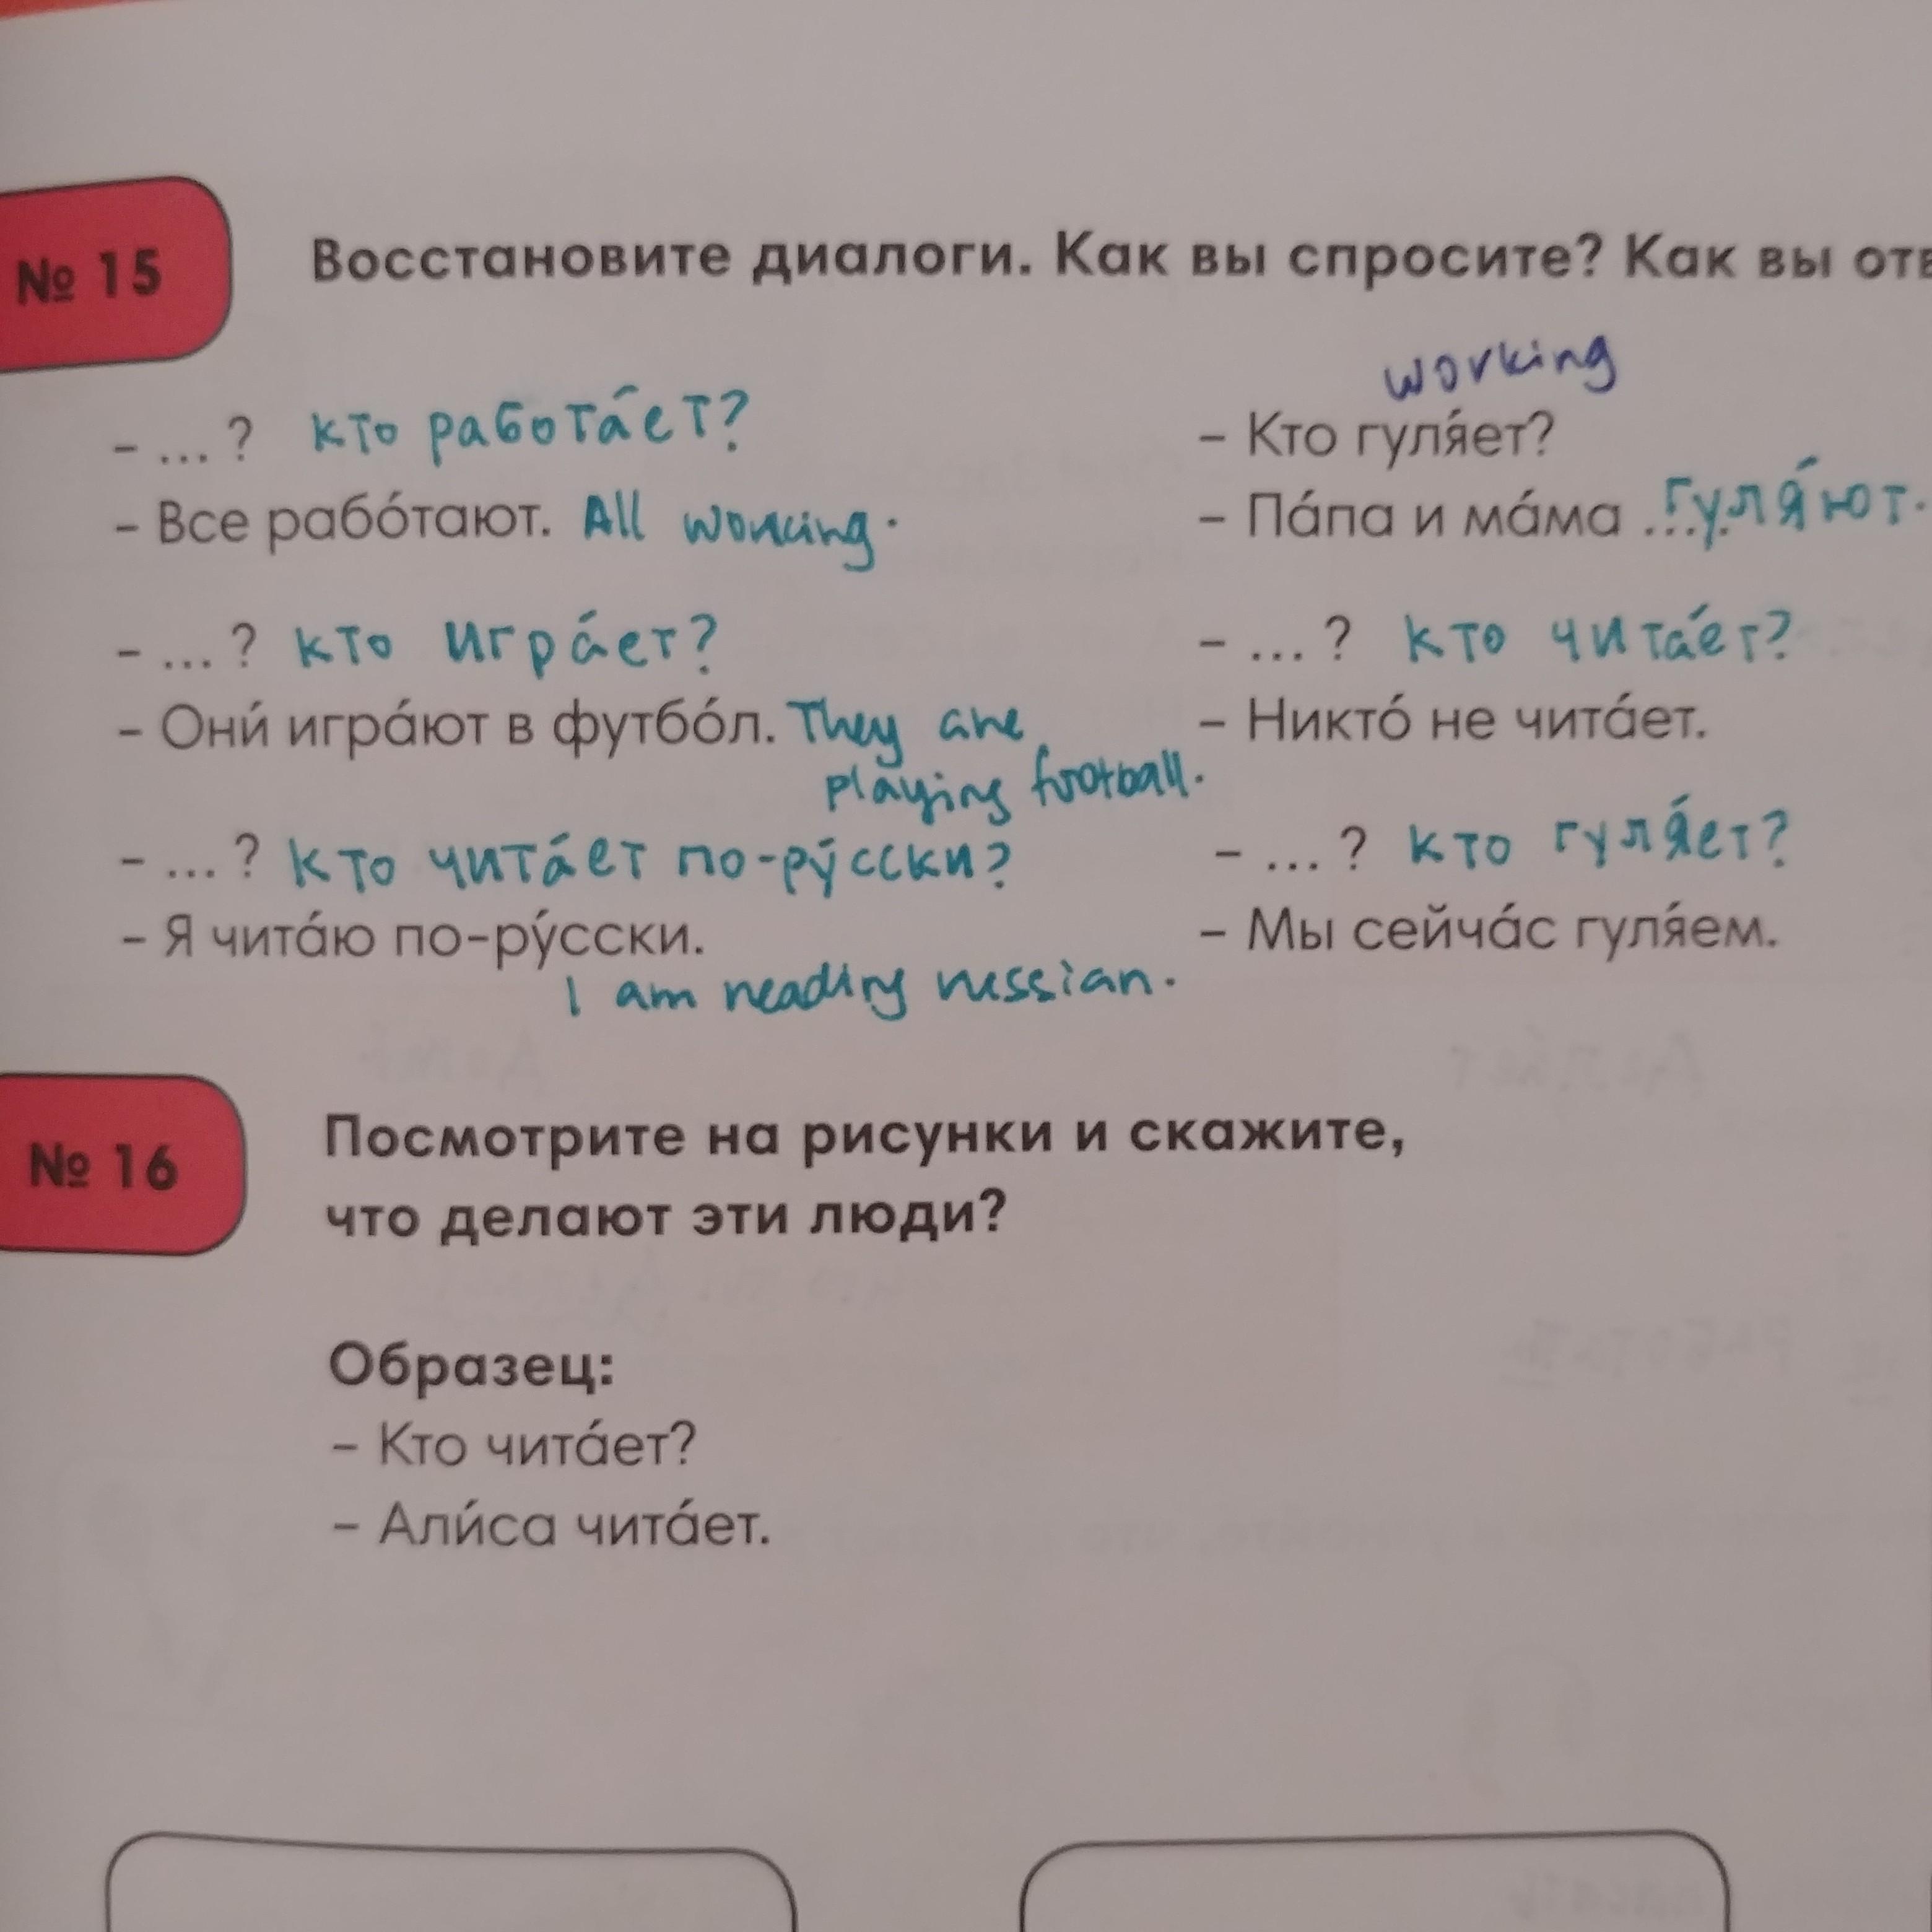 № 15
Восстановите диалоги. Как вы спросите? Как вы отв
– ... ? кто рабоτáет?
– Все рабо́тают. All working.
– ... ? кто игрáет?
– Они́ игрáют в футбо́л. They are
playing football.
– ... ? кто читáет по-ру́сски?
– Я читáю по-ру́сски.
I am reading russian.
working
– Кто гуля́ет?
– Пáпа и мáма ... гуля́ют.
– ... ? кто читáет?
– Никто́ не читáет.
– ... ? кто гуля́ет?
– Мы сейчáс гуля́ем.
№ 16
Посмотрите на рисунки и скажите,
что делают эти люди?
Образец:
– Кто читáет?
– Али́са читáет.